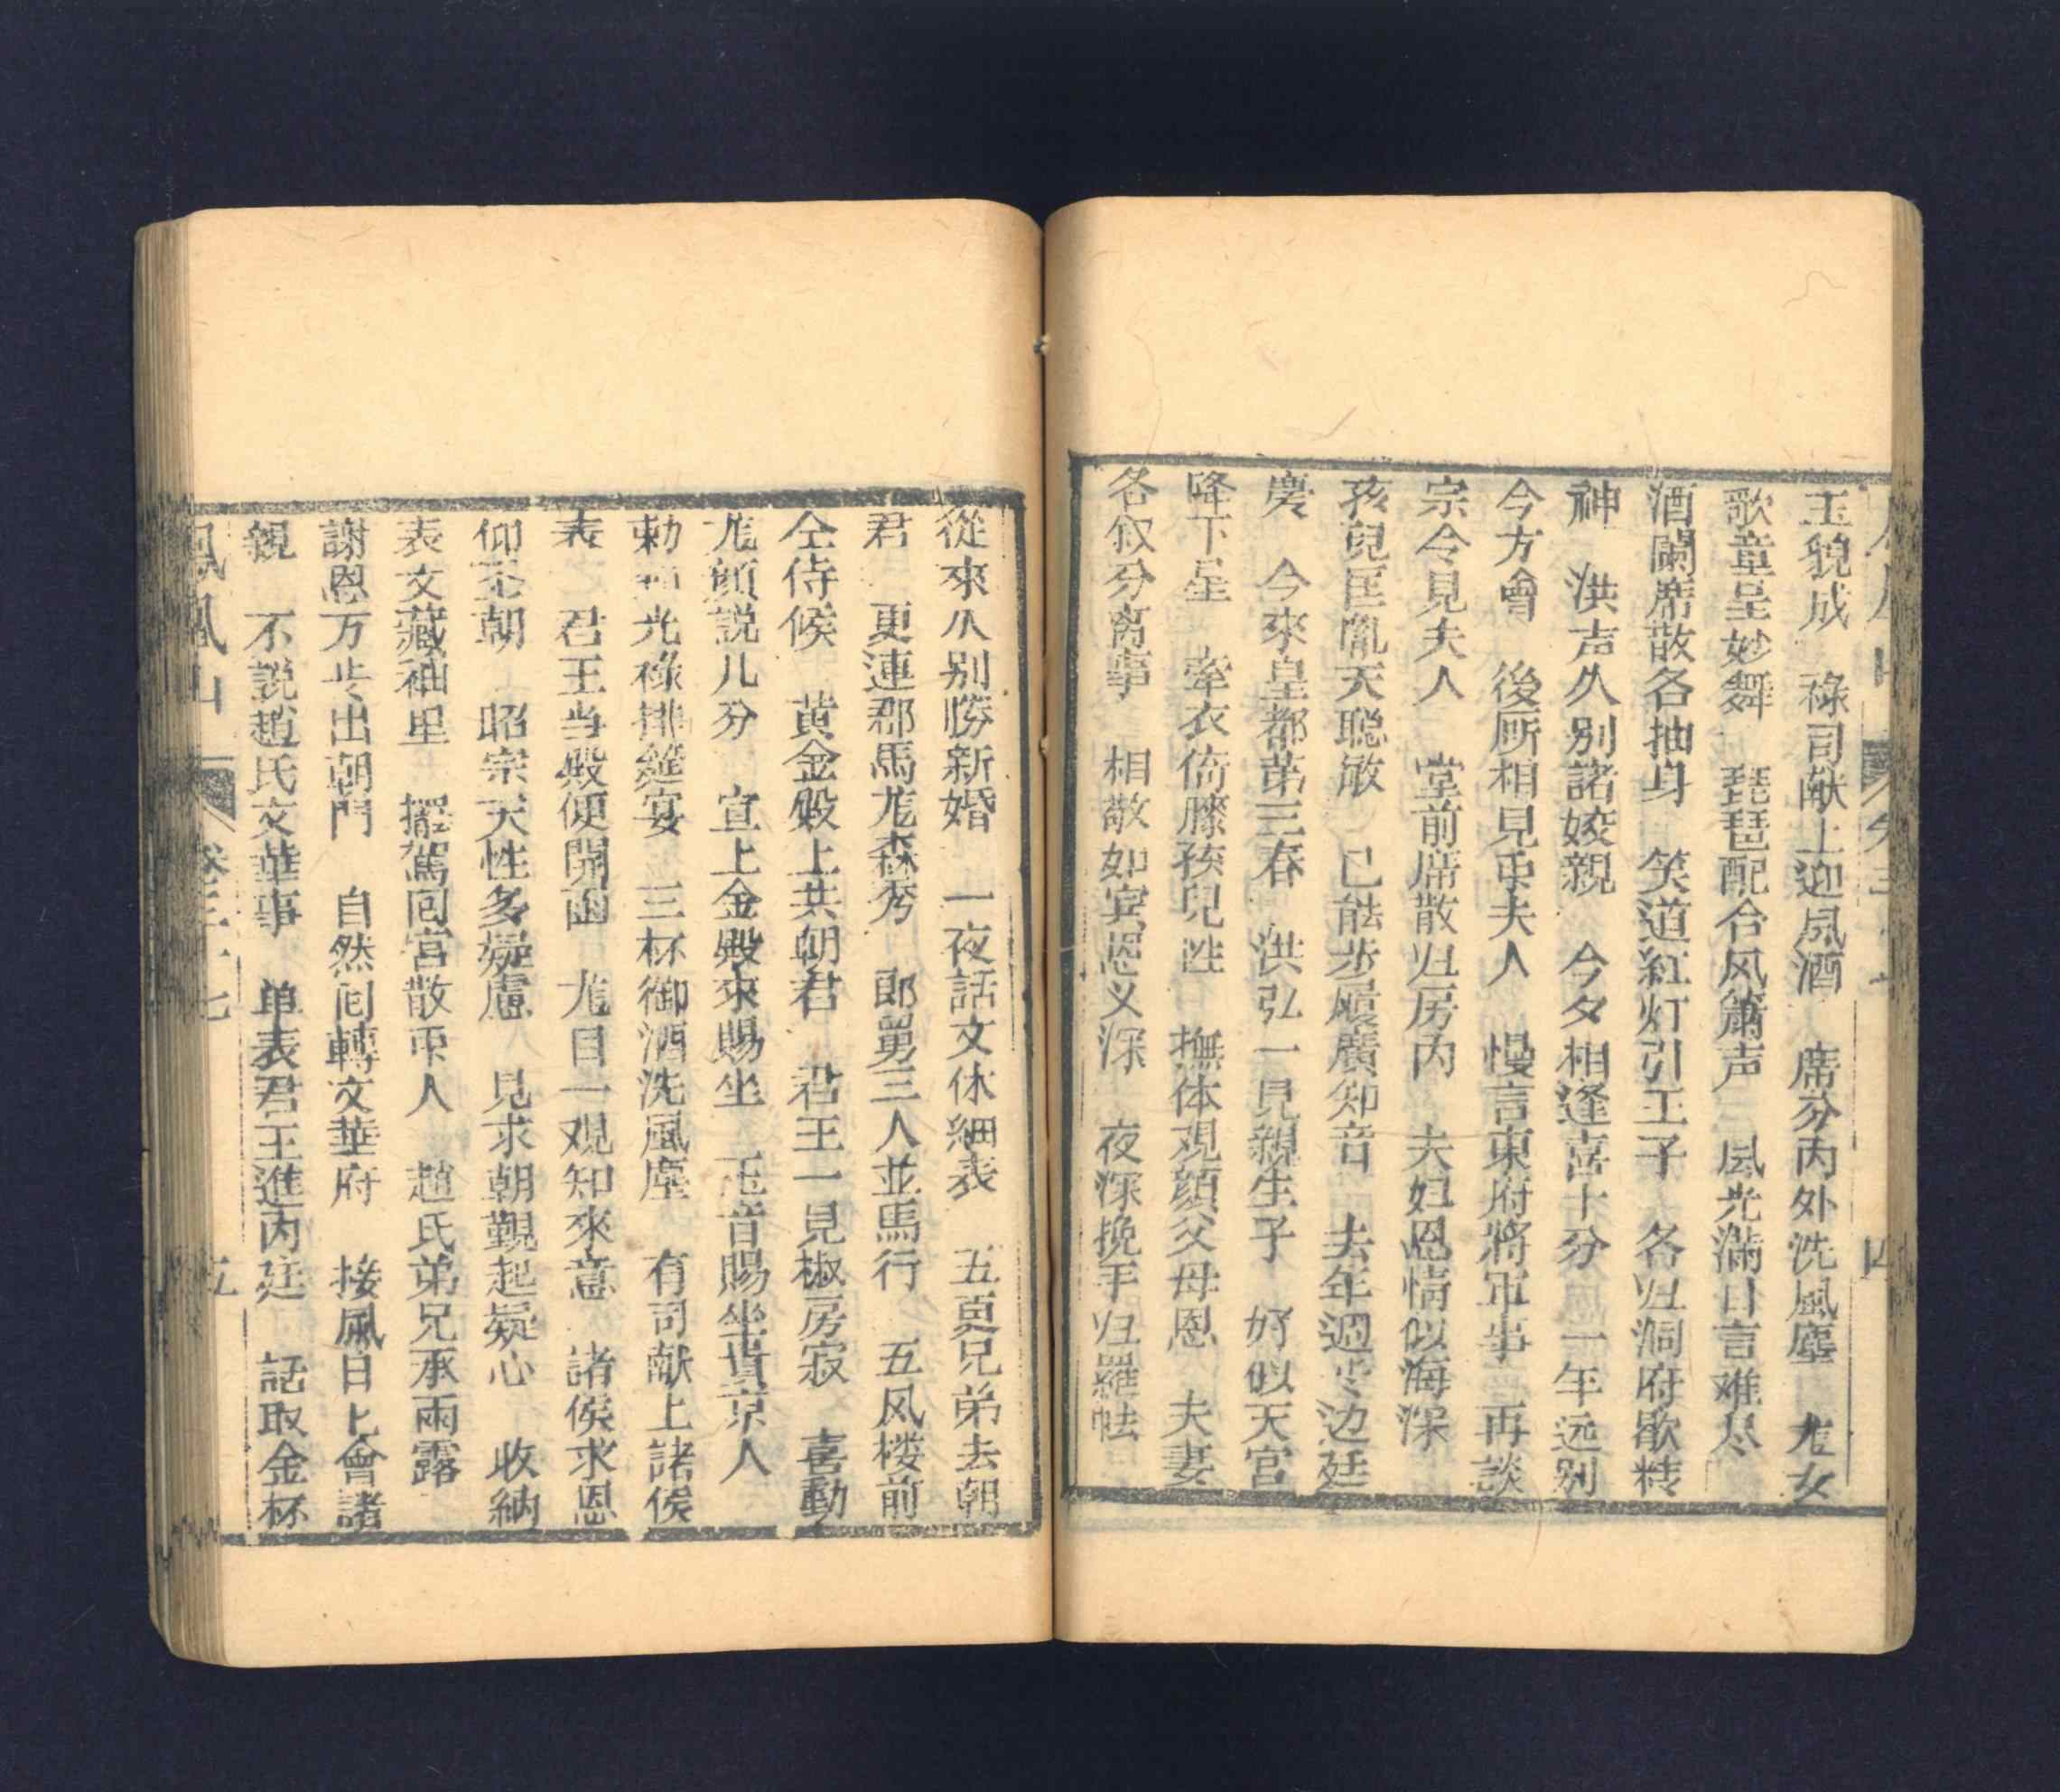 玉貌成　祿司献上迎凨酒　席芬内外洗風塵　尨女
歌章呈妙舞　琵琶配合风簫声　凨光滿目言难尽
酒闌席散各抽身　笑道紅灯引王子　各归洞府歇精
神　洪声久别諸姣親　今夕相逢喜十分　一年远别
今方會　後厛相見帀夫人　慢言東府將軍事　再談
宗令見夫人　堂前席散归房内　夫妇恩情似海深
孩兒匡胤天聪敏　已能步履廣知音　去年週岁边廷
慶　今來皇都第三春　洪弘一見親生子　好似天宫
降下星　牽衣倚膝孩兒性　撫体观顔父母恩　夫妻
各叙分离事　相敬如宾恩义深　夜深挽手归羅帐
從來久别勝新婚　一夜話文休細表　五更兄弟去朝
君　更連郡馬尨森秀　郎舅三人並馬行　五风楼前
仝侍候　黄金殿上共朝君　君王一見椒房寂　喜動
尨顔説几分　宣上金殿來賜坐　玉音賜坐貴京人
勅　光祿排筵宴　三杯御酒洗風塵　有司献上諸侯
表　君王当殿便開函　尨目一观知來意　諸侯求恩
仰天朝　昭宗天性多疑慮　見求朝覲起疑心　收納
表文藏袖里　擺駕回宫散帀人　趙氏弟兄承雨露
謝恩万岁出朝門　自然回轉文華府　接凨白匕會諸
親　不説趙氏文華事　单表君王進内廷　話取金杯
凤凰山　卷三十七　五